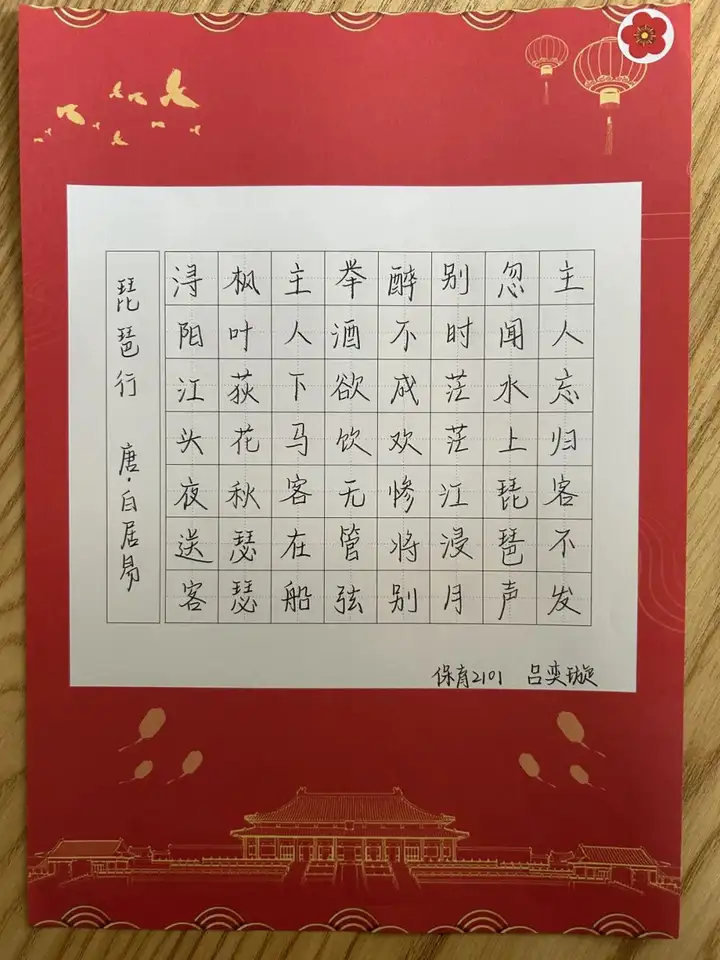 琵琶行 唐·白居易
浔阳江头夜送客
枫叶荻花秋瑟瑟
主人下马客在船
举酒欲饮无管弦
醉不成欢惨将别
别时茫茫江浸月
忽闻水上琵琶声
主人忘归客不发
保育2101 吕奕璇